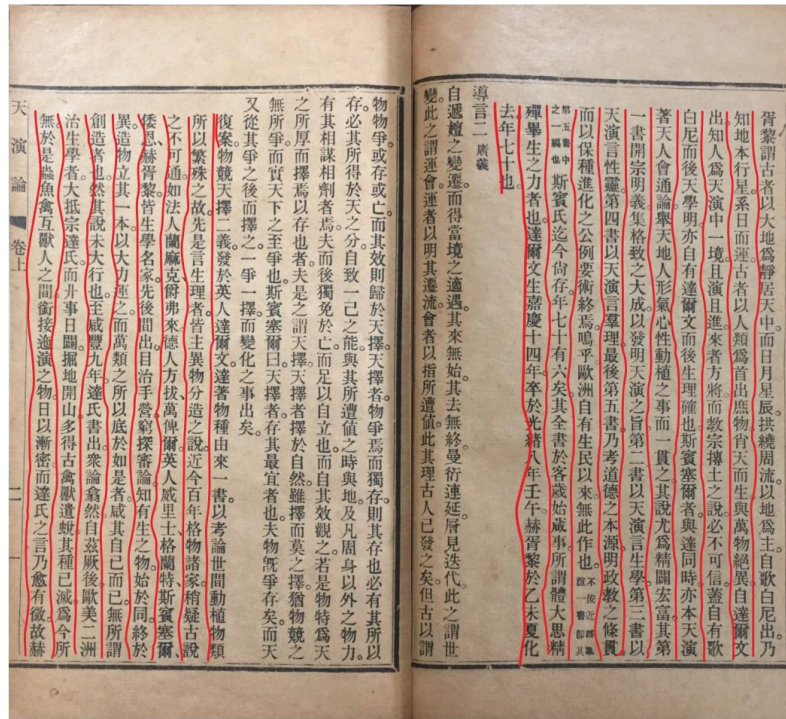 胥黎謂古者以大地爲靜居天中而日月星辰拱繞周流以地爲主自歌白尼出乃
知地本行星系日而運古者以人類爲首出庶物肖天而生與萬物絕異自達爾文
出知人爲天演中一境且演且進來者方將而教宗摶土之說必不可信蓋自有歌
白尼而後天學明亦自有達爾文而後生理確也斯賓塞爾者與達同時亦本天演
著天人會通論舉天地人形氣心性動植之事而一貫之其說尤爲精闢宏富其第
一書開宗明義集格致之大成以發明天演之旨第二書以天演言生學第三書以
天演言性靈第四書以天演言羣理最後第五書乃考道德之本源明政教之條貫
而以保種進化之公例要術終焉。嗚乎歐洲自有生民以來無此作也。不佞近繙羣誼一書即其
第五書中之一編也斯賓氏迄今尙存年七十有六矣其全書於客歲始蕆事所謂體大思精
殫畢生之力者也達爾文生嘉慶十四年卒於光緒八年壬午赫胥黎於乙未夏化
去年七十也。
導言二 廣義
自遞嬗之變遷而得當境之適遇其來無始其去無終曼衍連延層見迭代此之謂世
變此之謂運會運者以明其遷流會者以指所遭値此其理古人已發之矣但古以謂
物物爭或存或亡而其效則歸於天擇天擇者物爭焉而獨存則其存也必有其所以
存必其所得於天之分自致一己之能與其所遭値之時與地及凡周身以外之物力
有其相謀相劑者焉夫而後獨免於亡而足以自立也而自其效觀之若是物特爲天
之所厚而擇焉以存也者夫是之謂天擇天擇者擇於自然雖擇而莫之擇猶物競之
無所爭而實天下之至爭也斯賓塞爾曰天擇者存其最宜者也夫物旣爭存矣而天
又從其爭之後而擇之一爭一擇而變化之事出矣。
復案物競天擇二義發於英人達爾文達著物種由來一書以考論世間動植物類
所以繁殊之故先是言生理者皆主異物分造之說近今百年格物諸家稍疑古說
之不可通如法人蘭麻克爵弗來德人方拔萬俾爾英人威里士格蘭特斯賓塞爾
倭恩赫胥黎皆生學名家先後間出目治手營窮探審論知有生之物始於同終於
異造物立其一本以大力運之而萬類之所以底於如是者咸其自己而已無所謂
創造者也然其說未大行也至咸豐九年達氏書出衆論翕然自茲厥後歐美二洲
治生學者大抵宗達氏而卝事日闢掘地開山多得古禽獸遺蛻其種已滅爲今所
無於是蟲魚禽互獸人之間銜接迤演之物日以漸密而達氏之言乃愈有徵故赫
天演論 卷上 二